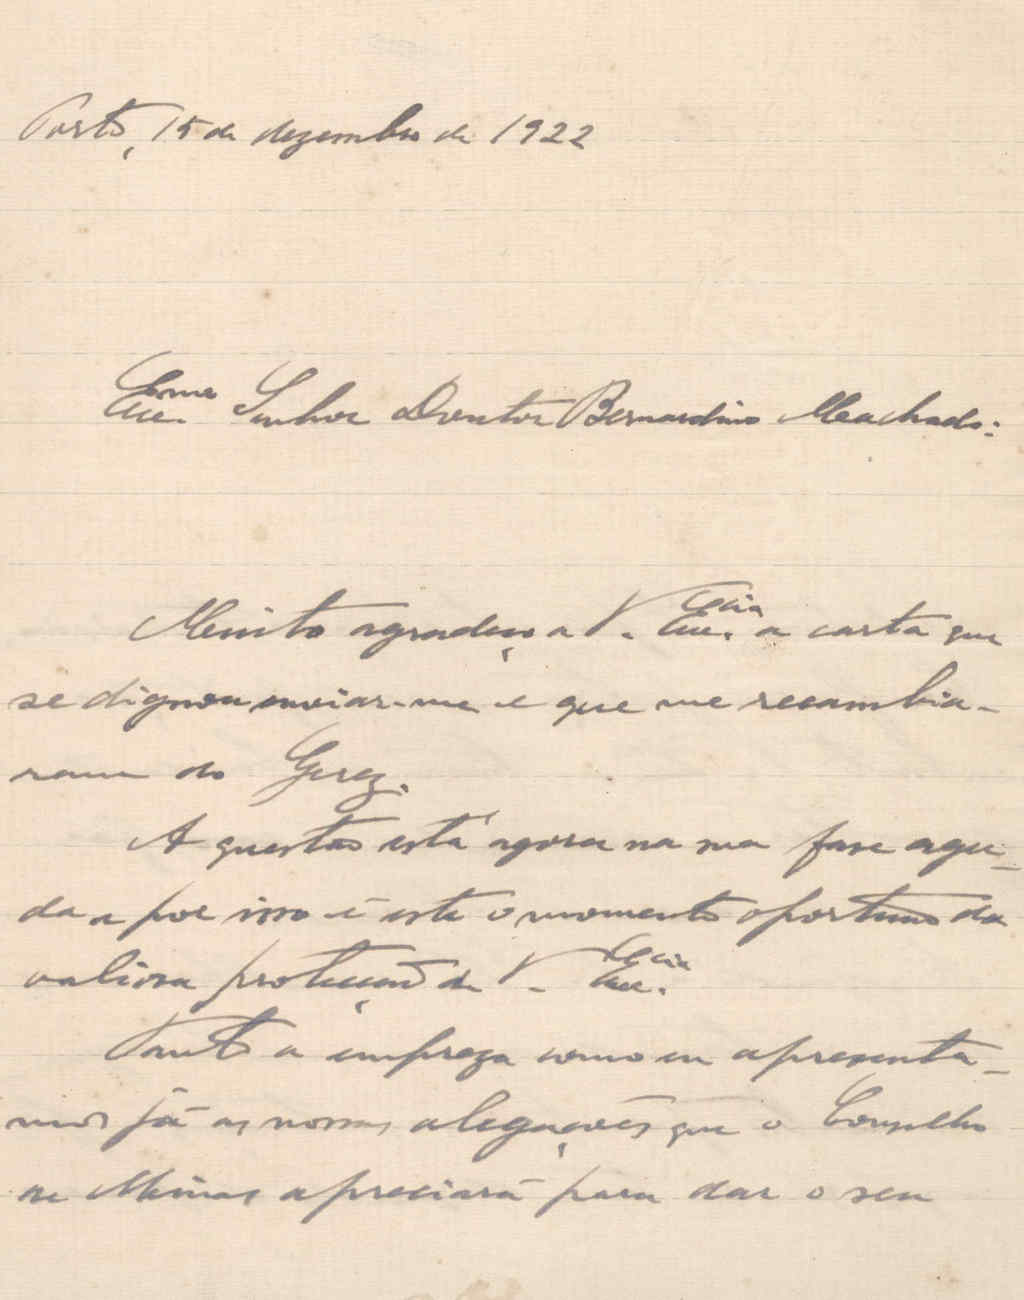 Porto, 15 de dezembro de 1922
Exmo Senhor Doutor Bernardino Machado:
Muito agradeço a V. Excia a carta que
se dignou enviar-me e que me recambia-
ram do Gerez.
A questão está agora na sua fase agu-
da e por isso é este o momento oportuno da
valiosa protecção de V. Excia.
Tanto a empreza como eu apresenta-
mos já as nossas alegações que o Conselho
de Minas apreciará para dar o seu